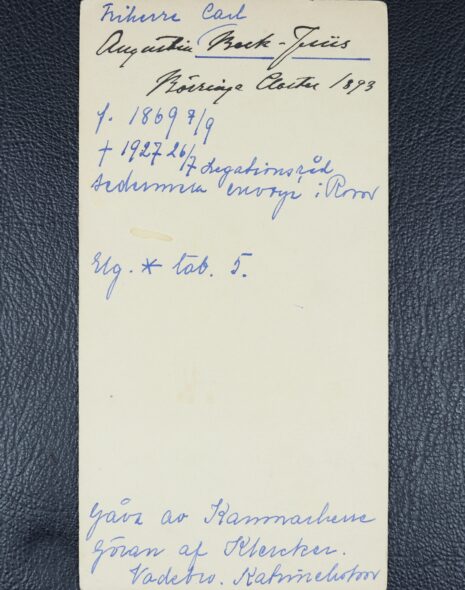 Friherre Carl
Augustin Beck-Friis
Börringe Closter 1893
f. 1869 7/9
† 1927 26/7 Legationsråd
sedermera envoyé i Rom
Elg. * tab. 5.
Gåva av Kammarherre
Göran af Klercker.
Vadsbro. Katrineholm